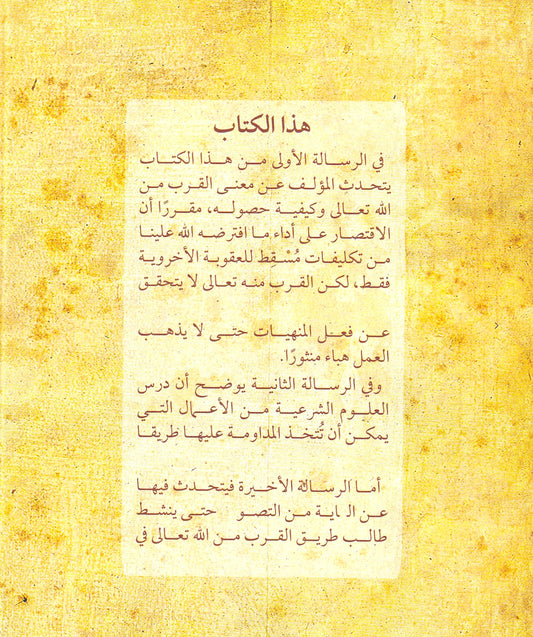 هذا الكتاب
في الرسالة الأولى من هذا الكتاب
يتحدث المؤلف عن معنى القرب من
الله تعالى وكيفية حصوله، مقررًا أن
الاقتصار على أداء ما افترضه الله علينا
من تكليفات مُسْقِط للعقوبة الأخروية
فقط، لكن القرب منه تعالى لا يتحقق
عن فعل المنهيات حتى لا يذهب
العمل هباء منثورًا.
وفي الرسالة الثانية يوضح أن درس
العلوم الشرعية من الأعمال التي
يمكن أن تُتخذ المداومة عليها طريقا
أما الرسالة الأخيرة فيتحدث فيها
عن من حتى ينشط
طالب طريق القرب من الله تعالى في